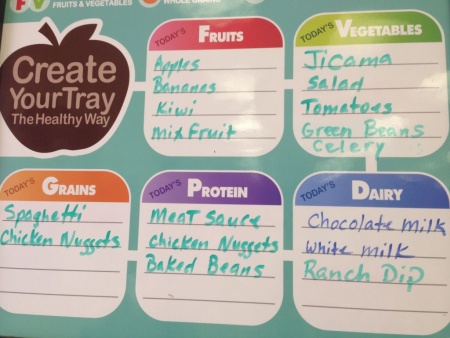 FV FRUITS & VEGETABLES
WHOLE GRAINS
Create
Your Tray
The Healthy Way
TODAY'S FRUITS
Apples
Bananas
Kiwi
Mix Fruit
TODAY'S VEGETABLES
Jicama
Salad
Tomatoes
Green Beans
Celery
TODAY'S GRAINS
Spaghetti
Chicken Nuggets
TODAY'S PROTEIN
Meat Sauce
Chicken Nuggets
Baked Beans
TODAY'S DAIRY
Chocolate Milk
White Milk
Ranch Dip